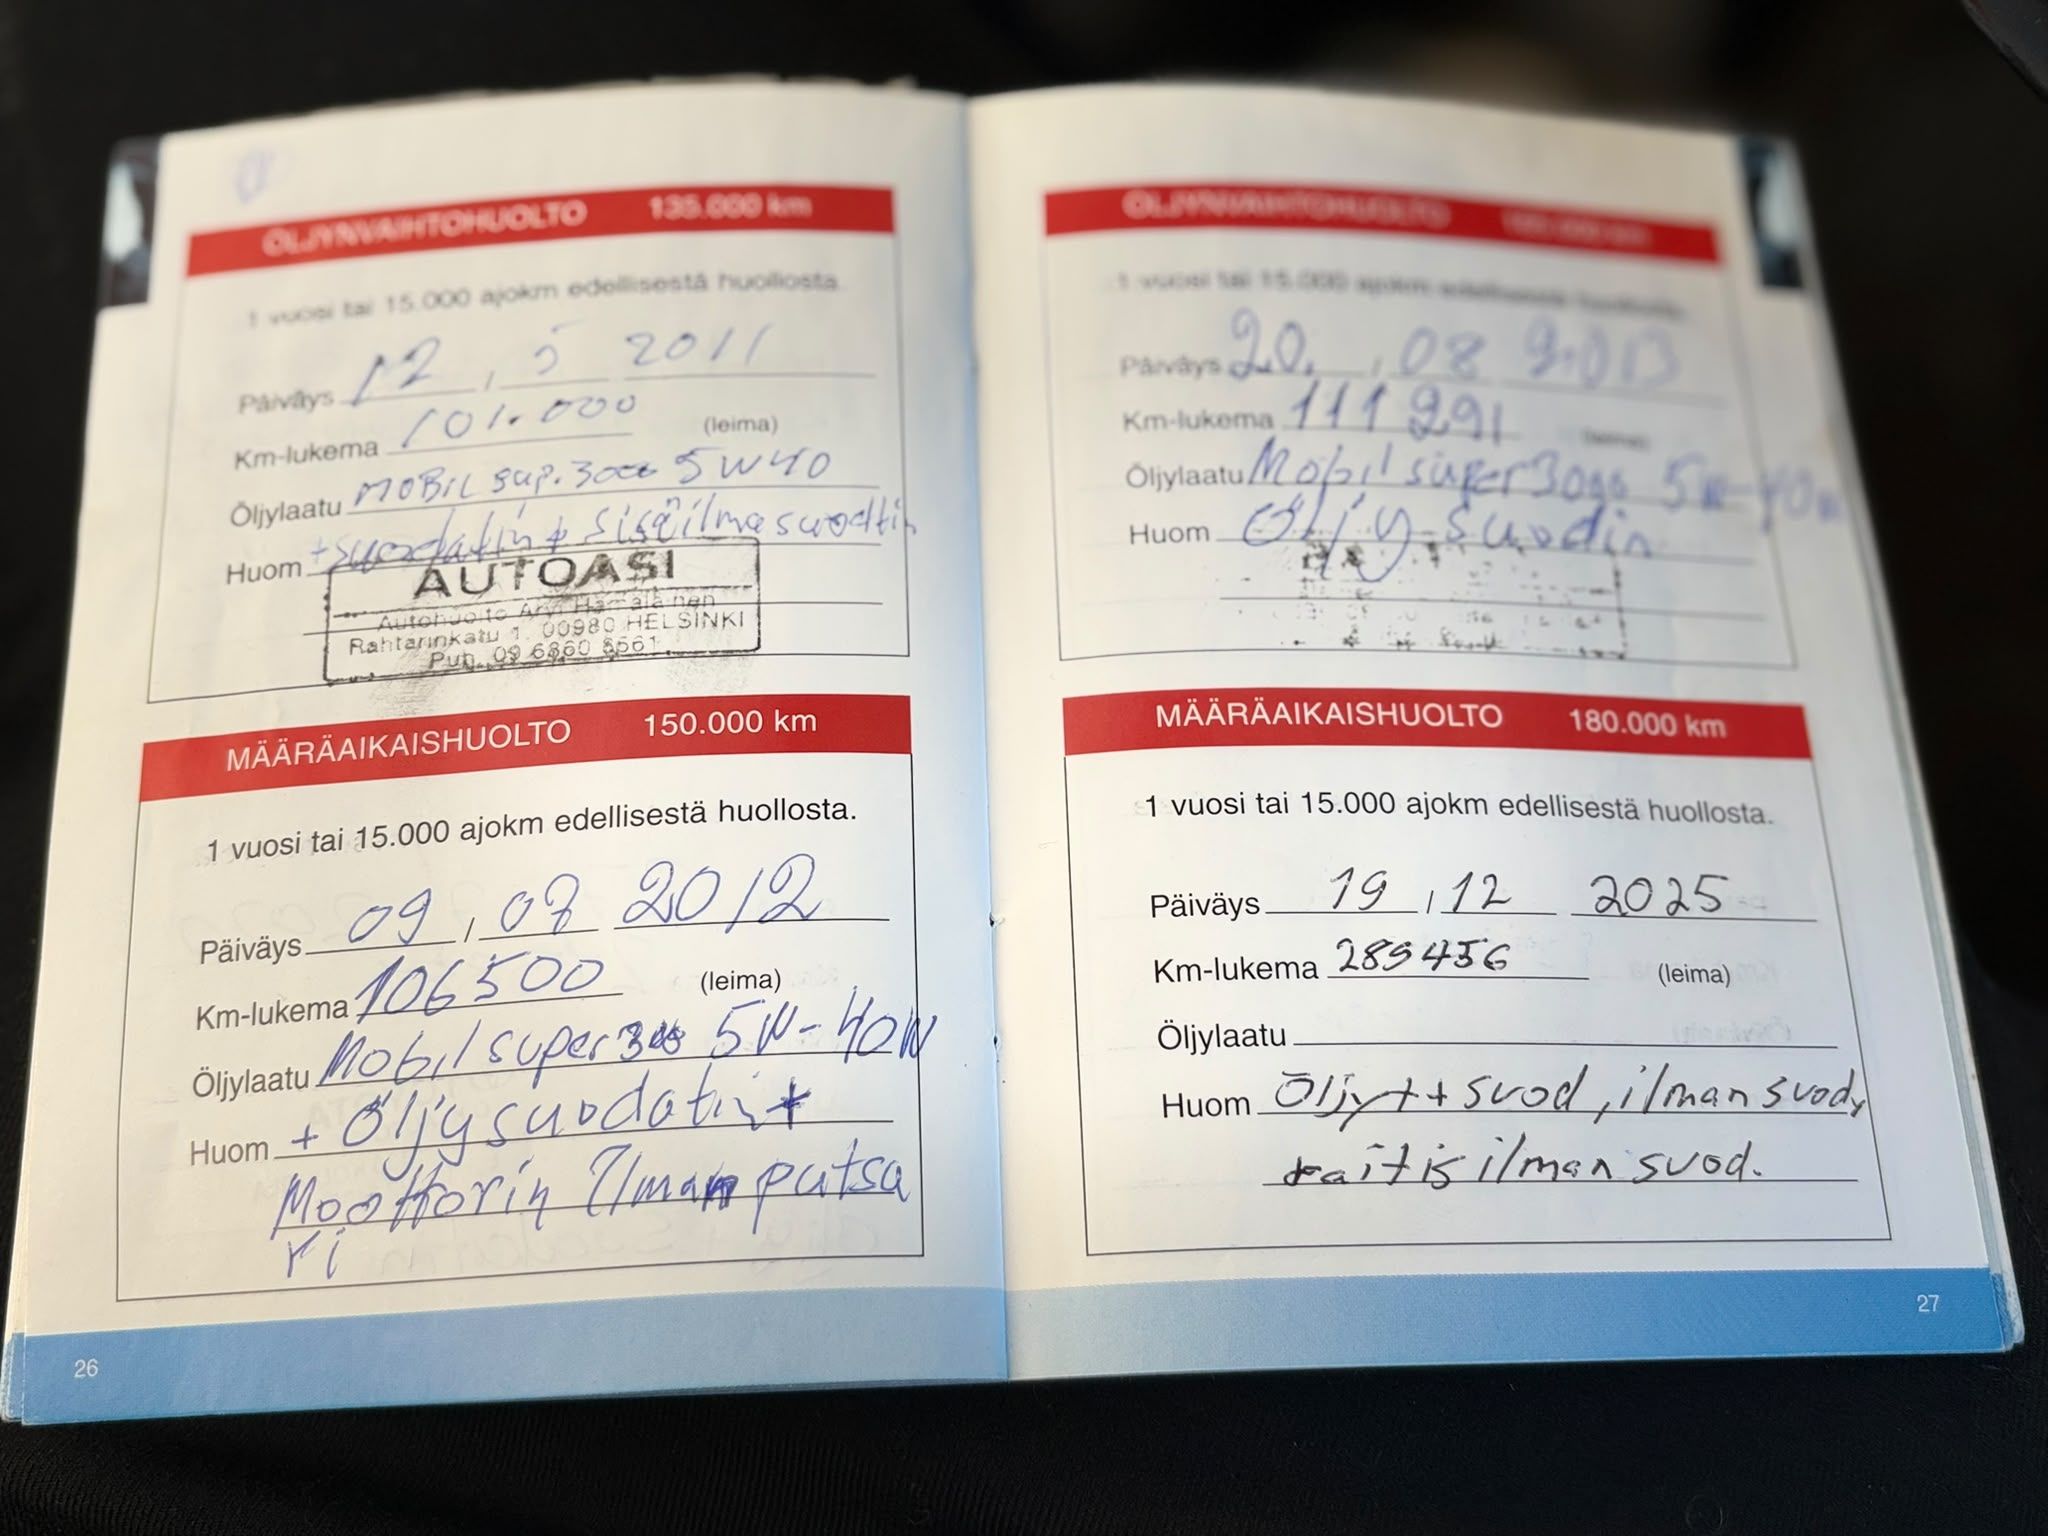 ÖLJYNVAIHTOHUOLTO 135.000 km
1 vuosi tai 15.000 ajokm edellisestä huollosta.
Päiväys 12 , 5 2011
Km-lukema 101.000 (leima)
Öljylaatu MOBIL sup. 3000 5W40
Huom + suodatin + sisäilmasuodttin
AUTOASI
Autohuolto Arvi Hämäläinen
Rahtarinkatu 1, 00980 HELSINKI
Puh. 09 6860 8661
MÄÄRÄAIKAISHUOLTO 150.000 km
1 vuosi tai 15.000 ajokm edellisestä huollosta.
Päiväys 09 , 07 2012
Km-lukema 106500 (leima)
Öljylaatu Mobil super 3000 5W-40W
Huom + Öljysuodatin +
Moottorin Ilman putsa
ri
26
ÖLJYNVAIHTOHUOLTO
1 vuosi tai 15.000 ajokm edellisestä huollosta.
Päiväys 20. , 08 2013
Km-lukema 111 291 (leima)
Öljylaatu Mobil super 3000 5W-40W
Huom Öljy suodin
MÄÄRÄAIKAISHUOLTO 180.000 km
1 vuosi tai 15.000 ajokm edellisestä huollosta.
Päiväys 19 , 12 2025
Km-lukema 289456 (leima)
Öljylaatu
Huom Öljyt + suod, ilman suod,
raitis ilman suod.
27